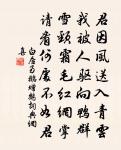 君因風送入青雲
我被人驅向鴨群
雪頸霜毛紅網掌
請看何處不如君
白居易鵝贈鶴詞典網
喜